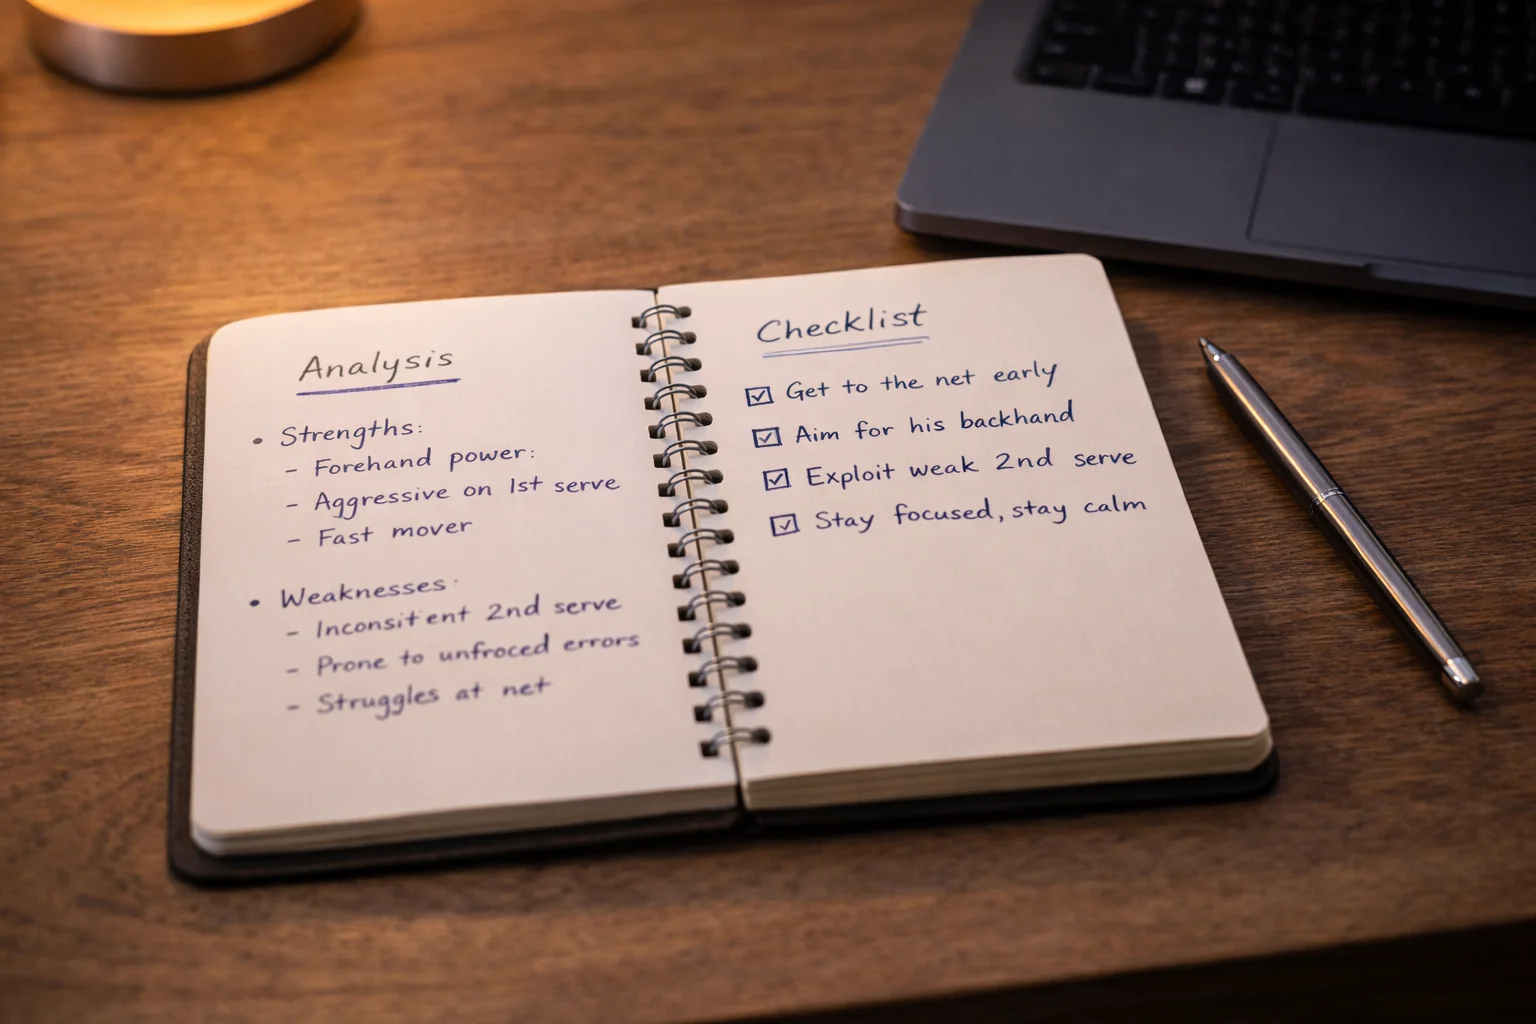 Analysis
• Strengths:
- Forehand power:
- Aggressive on 1st serve
- Fast mover
• Weaknesses:
- Inconsitent 2nd serve
- Prone to unfroced errors
- Struggles at net
Checklist
☑ Get to the net early
☑ Aim for his backhand
☑ Exploit weak 2nd serve
☑ Stay focused, stay calm